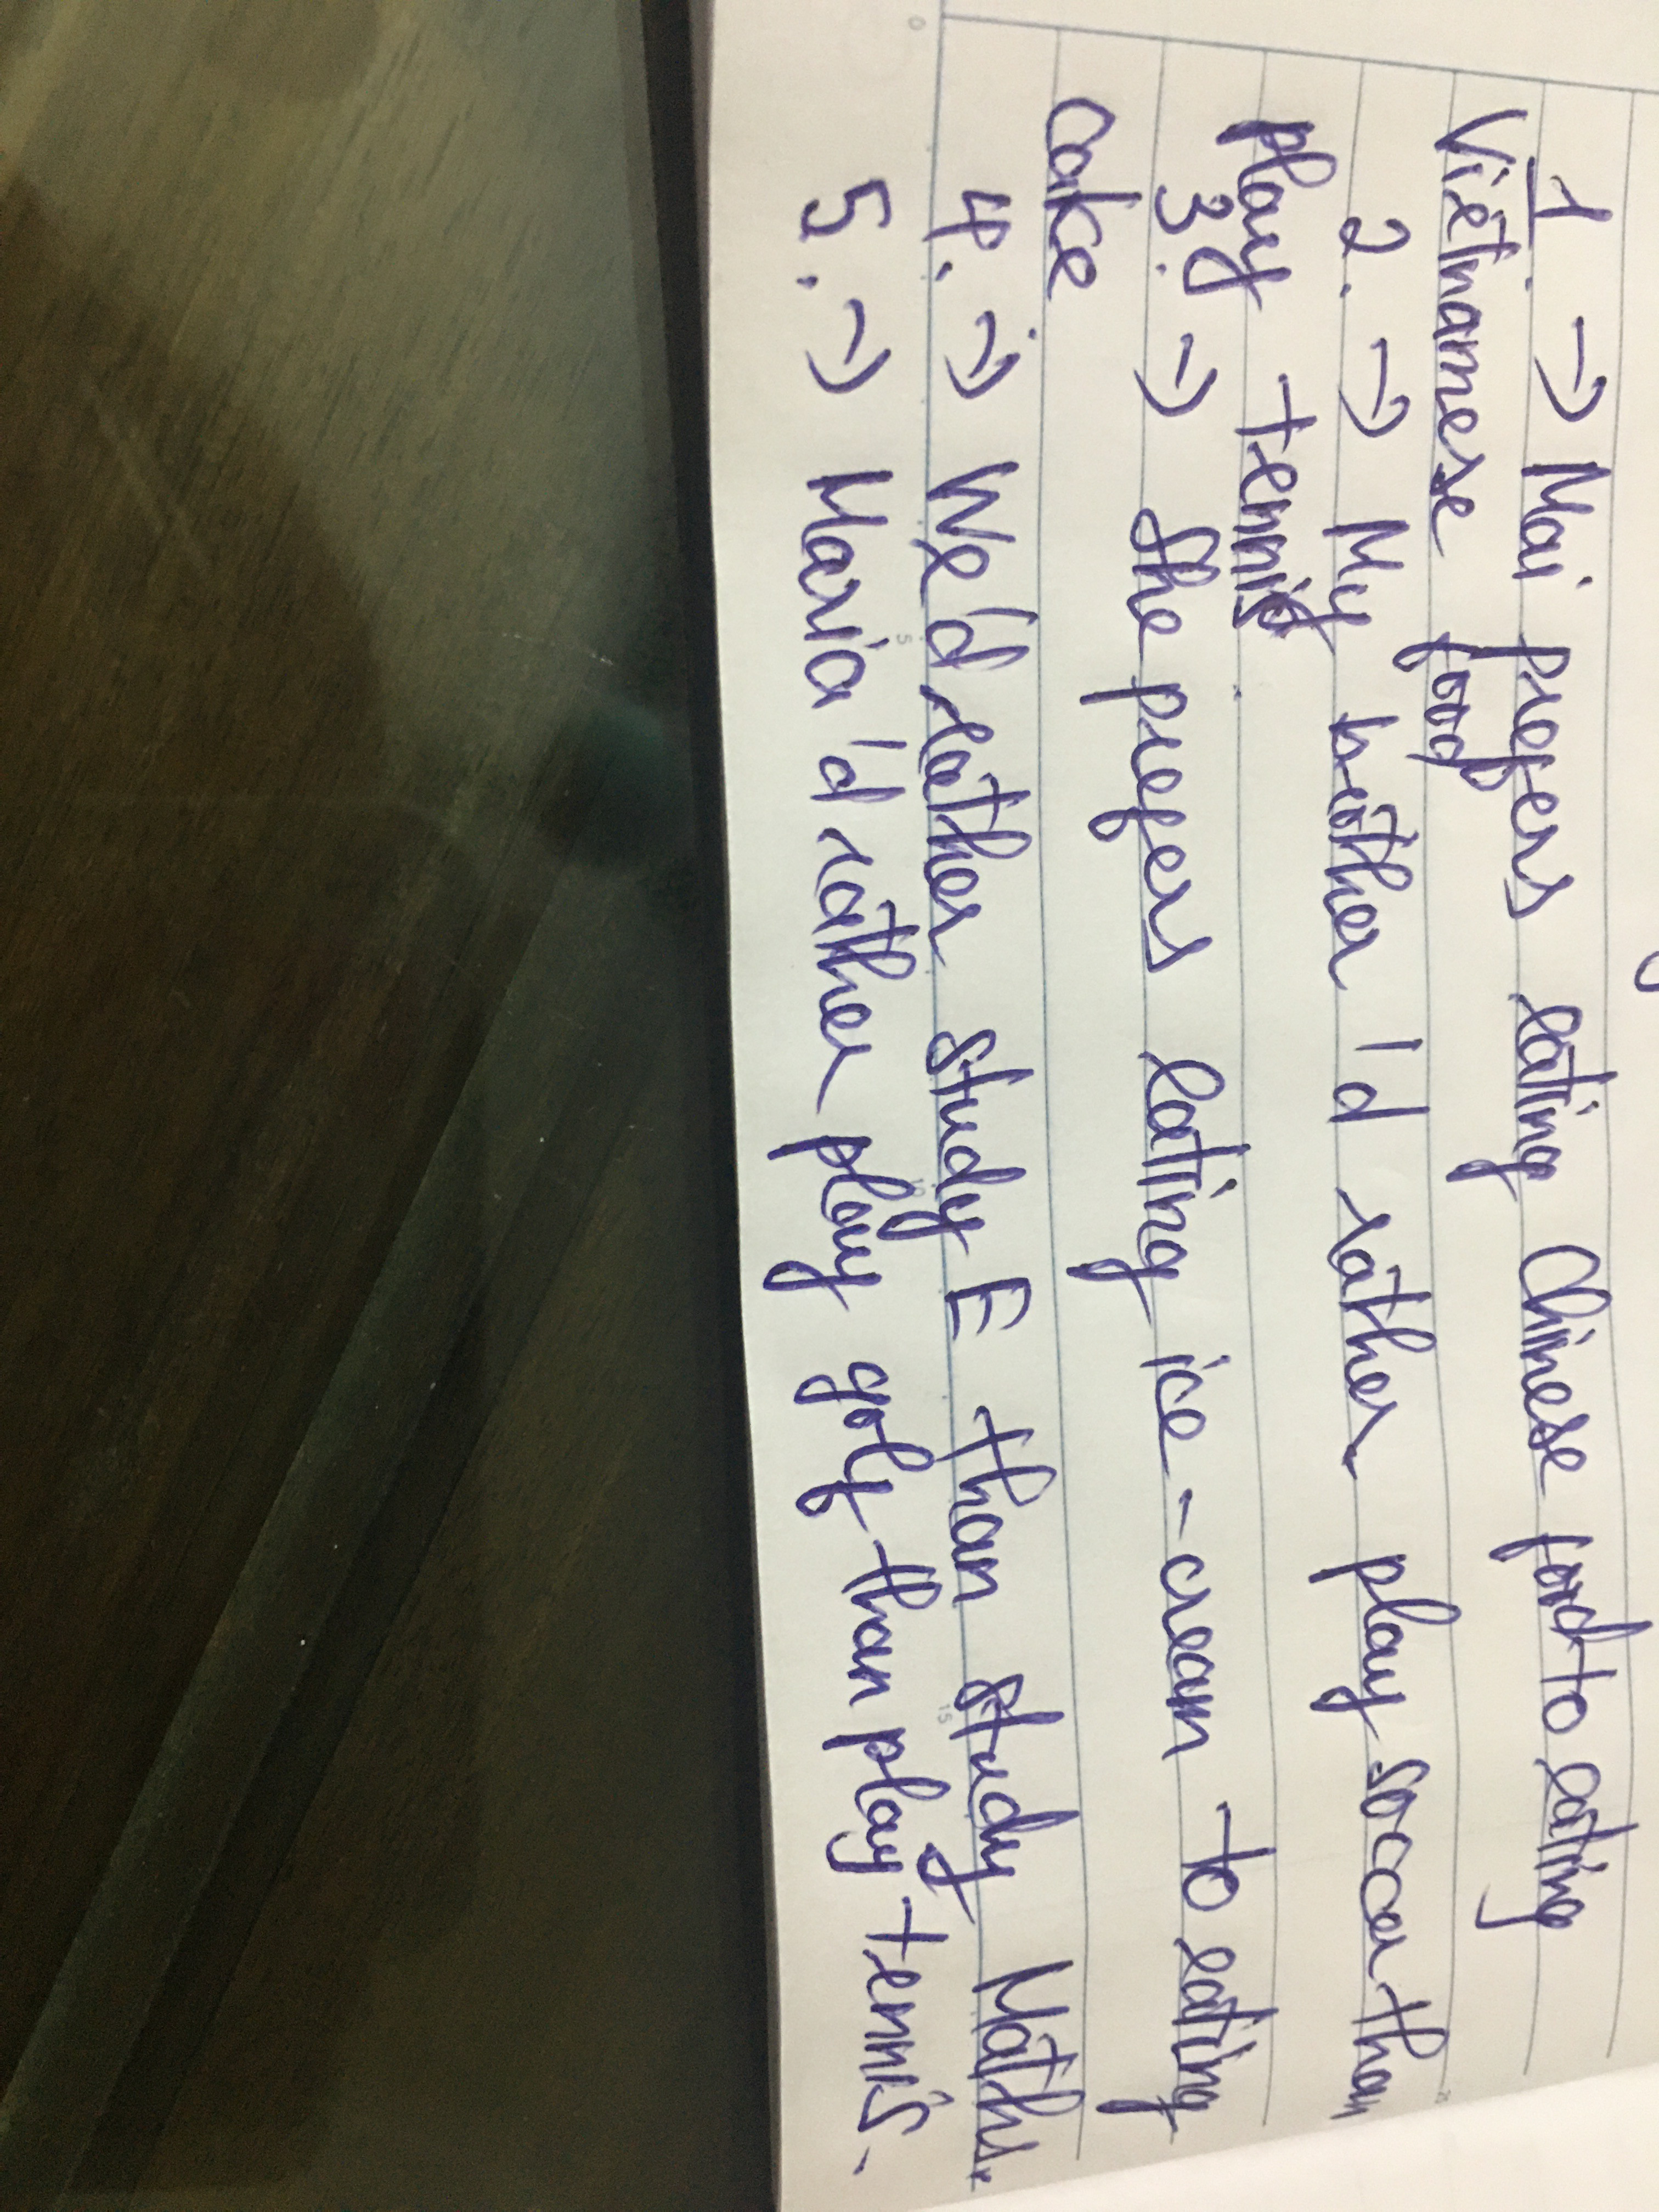 1. → Mai prefers eating Chinese food to eating
Vietnamese food
2. → My brother 'd rather play soccer than
play tennis.
3. → She prefers eating ice-cream to eating
cake
4. → We'd rather study E than study Maths.
5. → Maria 'd rather play golf than play tennis.